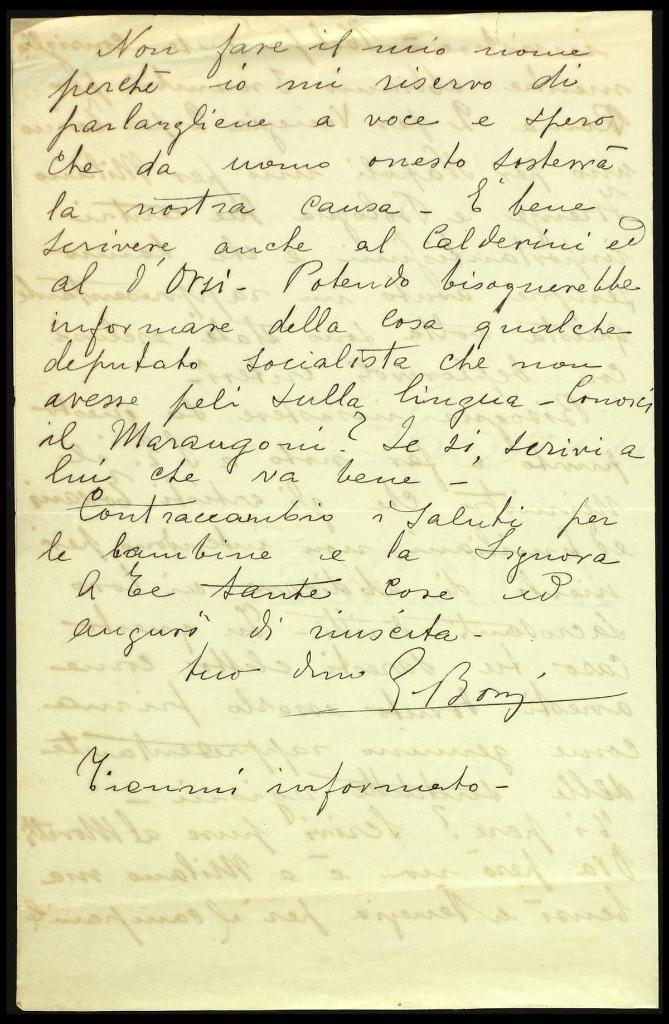 Non fare il mio nome
perchè io mi riservo di
parlargliene a voce e spero
che da uomo onesto sosterrà
la nostra causa - È bene
scrivere anche al Calderini ed
al D'Orsi - Potendo bisognerebbe
informare della cosa qualche
deputato socialista che non
avesse peli sulla lingua - Conosci
il Marangoni? Se si, scrivi a
lui che va bene -
Contraccambio i saluti per
le bambine e la Signora
A te tante cose ed
auguri di riuscita -
tuo
Tienmi informato -